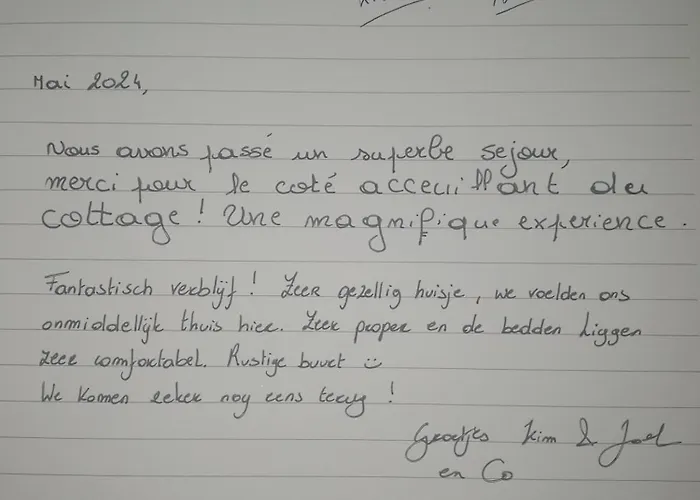 Mai 2024,
Nous avons passé un superbe sejour,
merci pour le coté acceuillant du
cottage ! Une magnifique experience.
Fantastisch verblijf ! Zeer gezellig huisje, we voelden ons
onmiddellijk thuis hier. Zeer proper en de bedden liggen
zeer comfortabel. Rustige buurt ☺
We komen zeker nog eens terug !
Groetjes Kim & Joel
en Co